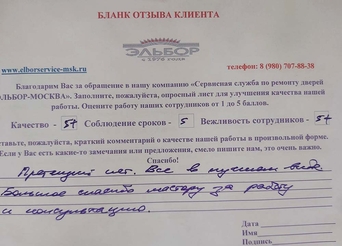 БЛАНК ОТЗЫВА КЛИЕНТА
ЭЛЬБОР
с 1976 года
www.elborservice-msk.ru
телефон: 8 (980) 707-88-38
Благодарим Вас за обращение в нашу компанию «Сервисная служба по ремонту дверей
ЭЛЬБОР-МОСКВА». Заполните, пожалуйста, опросный лист для улучшения качества нашей
работы. Оцените работу наших сотрудников от 1 до 5 баллов.
Качество - 5+ Соблюдение сроков - 5 Вежливость сотрудников - 5+
тавьте, пожалуйста, краткий комментарий о качестве нашей работы в произвольной форме.
Если у Вас есть какие-то замечания или предложения, смело пишите нам, это очень важно.
Спасибо!
Претензий нет. Все в лучшем виде
Большое спасибо мастеру за работу
и консультацию.
Дата
Имя
Подпись